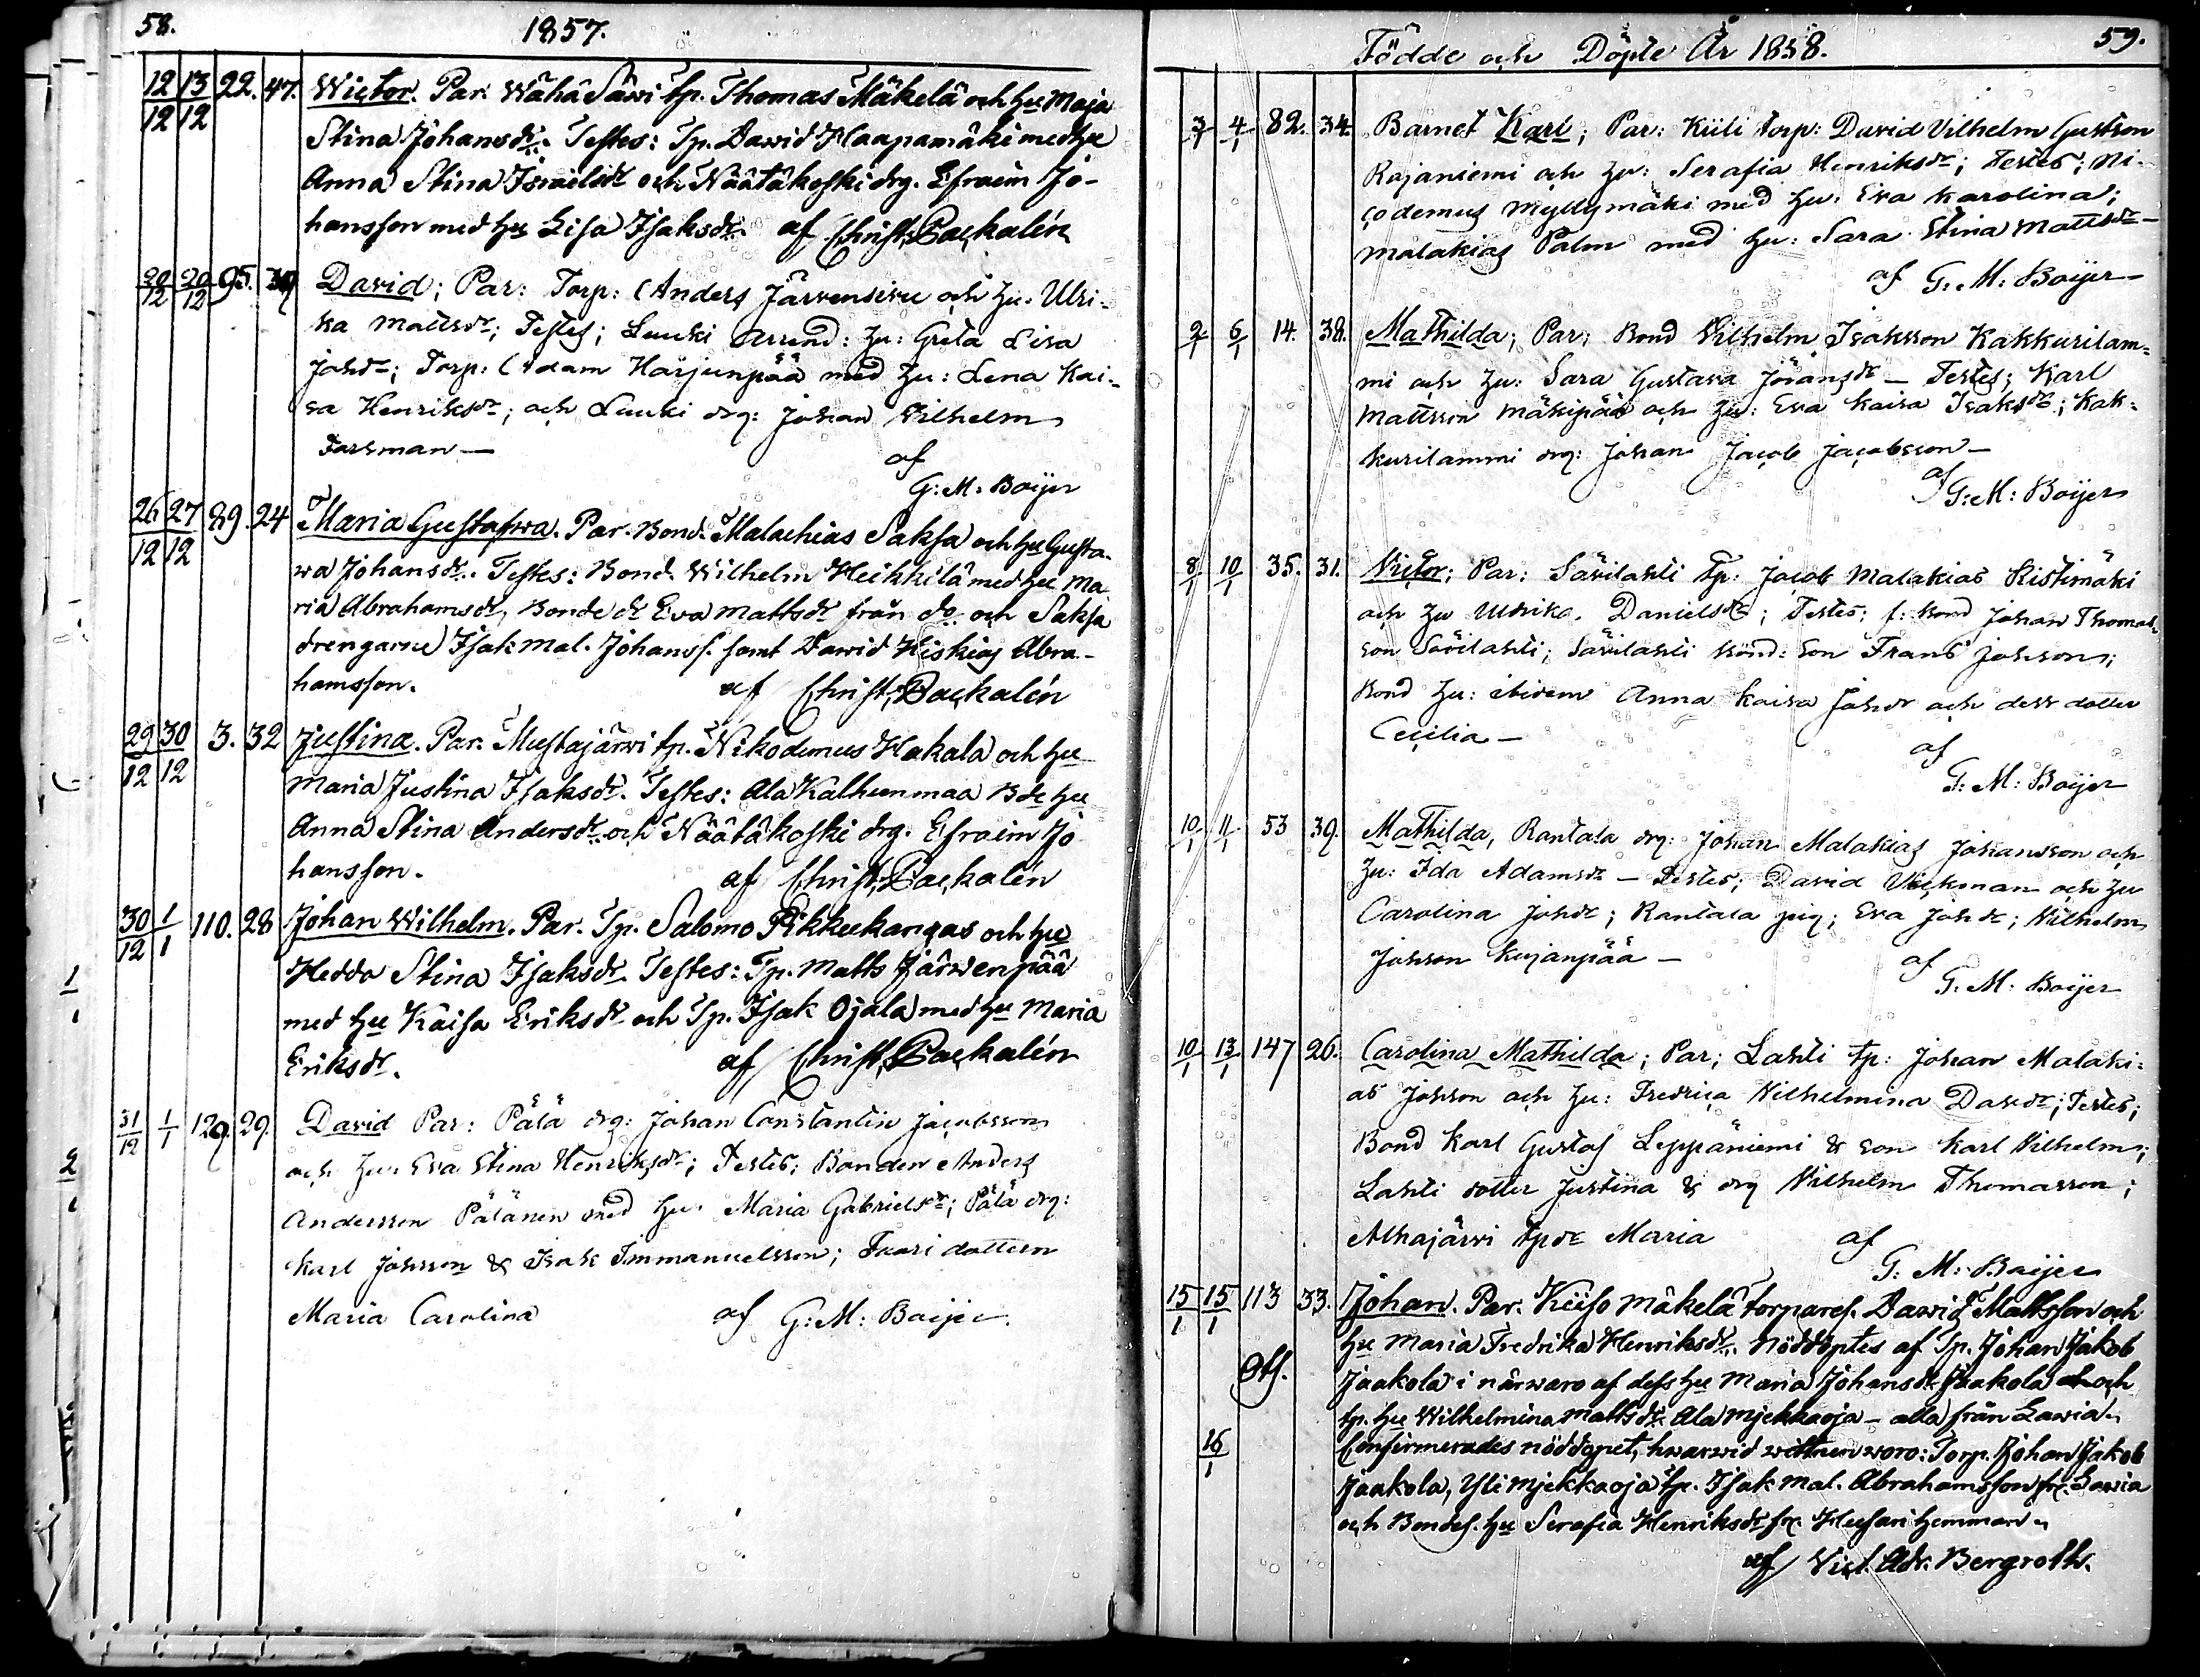 58.
1857.
12/12 13/12 22. 47. Wictor. Par. Wähä Säwi tp. Thomas Mäkelä och hu Maja
Stina Johansdr. Testes: Tp. Dawid Haapamäki med hu
Anna Stina Israelsdr och Näätäkoski drg. Efraim Jo-
hansson med hu Lisa Isaksdr. af Christ. Backalén
20/12 20/12 95. David; Par: Torp: Anders Järvensivu och hu. Ulri-
ka Mattsdr; Testes; Luuki Arrend: hu: Greta Lisa
Johdr; Torp: Adam Harjunpää med hu: Lena Kai-
sa Henriksdr; och Luuki drg: Johan Vilhelm
Forsman —
af
G: M: Boijer
26/12 27/12 89. 24 Maria Gustafwa. Par. Bond. Malachias Saksa och hu Gusta-
wa Johansdr. Testes: Bond. Wilhelm Heikkilä med hu Ma
ria Abrahamsdr, Bonde dr Eva Mattsdr från do och Saksa
drengarne Isak Mal. Johanss. samt Dawid Hiskias Abra-
hamsson. af Christ. Backalén
29/12 30/12 3. 32 Justina. Par. Mustajärwi tp. Nikodemus Hakala och hu
Maria Justina Isaksdr. Testes: Ala Kalhunmaa Bde hu
Anna Stina Andersdr och Näätäkoski drg. Efraim Jo
hansson. af Christ. Backalén
30/12 1/1 110. 28 Johan Wilhelm. Par. Tp. Salomo Pikkukangas och hu
Hedda Stina Isaksdr. Testes: Tp. Matts Järwenpää
med hu Kaisa Eriksdr och Tp. Isak Ojala med hu Maria
Eriksdr. af Christ. Backalén
31/12 1/1 129. 29. David Par: Pälä drg: Johan Constantin Jacobsson
och hu: Eva Stina Henriksdr; Testes; Bonden Anders
Andersson Pälänen med hu. Maria Gabrielsdr; Pälä drg:
Karl Johsson & Isak Immanuelsson; dottern
Maria Carolina af G: M: Boijer.
Födde och Döpte År 1858.
59.
3/1 4/1 82. 34. Barnet Karl; Par: Kiili torp: David Vilhelm Gustson
Rajaniemi och hu: Serafia Henriksdr; Testes; Ni-
codemus Myllymäki med hu. Eva Karolina;
Malakias Palm med hu: Sara Stina Mattsdr —
af G. M: Boijer —
2/1 6/1 14. 38. Mathilda; Par; Bond Vilhelm Isaksson Kakkurilam-
mi och hu: Sara Gustava Jöransdr — Testes; Karl
Mattsson Mäkipää och hu: Eva Kaisa Isaksdr; Kak-
kurilammi drg: Johan Jacob Jacobsson —
af G: M: Boijer
8/1 10/1 35. 31. Victor; Par: Sävilahti tp: Jacob Malakias Ristimäki
och hu Ulrika. Danielsdr; Testes; f: bond Johan Thomas-
son Sävilahti; Sävilahti bond: son Frans Johsson;
Bond hu: ibidem Anna Kaisa Johdr och dess dotter
Cecilia —
af
G: M: Boijer
10/1 11/1 53 39. Mathilda, Rantala drg: Johan Malakias Johansson och
hu: Ida Adamsdr — Testes; David Vickman och hu
Carolina Johdr; Rantala pig; Eva Johdr; Vilhelm
Johsson Kujanpää —
af
G. M: Boijer
10/1 13/1 147 26. Carolina Mathilda; Par; Lahti tp: Johan Malaki-
as Johsson och hu: Fredrica Vilhelmina Davdr; Testes;
Bond Karl Gustaf Leppäniemi & son Karl Vilhelm;
Lahti dotter Justina & drg Vilhelm Thomasson;
Alhajärvi tpdr Maria
af
G. M: Boijer
15/1 15/1 113 33. Johan. Par. Keiso Mäkelä torpares. Dawid Mattsson och
hu Maria Fredrika Henriksdr. Nöddöptes af Tp. Johan Jakob
Jaakola i närwaro af dess hu Maria Johansdr Jaakola och
tp. hu Wilhelmina Mattsdr. Ala Mjekkaoja — alla från Lawia.
16/1 Confirmerades nöddopet, hwarwid wittnen woro: Torp. Johan Jakob
Jaakola, Yli Mjekkaoja tp. Isak Mal. Abrahamsson fr. Lawia
och Bondes. hu Serafia Henriksdr fr. Husari hemman.
af Vict. Adr. Bergroth.